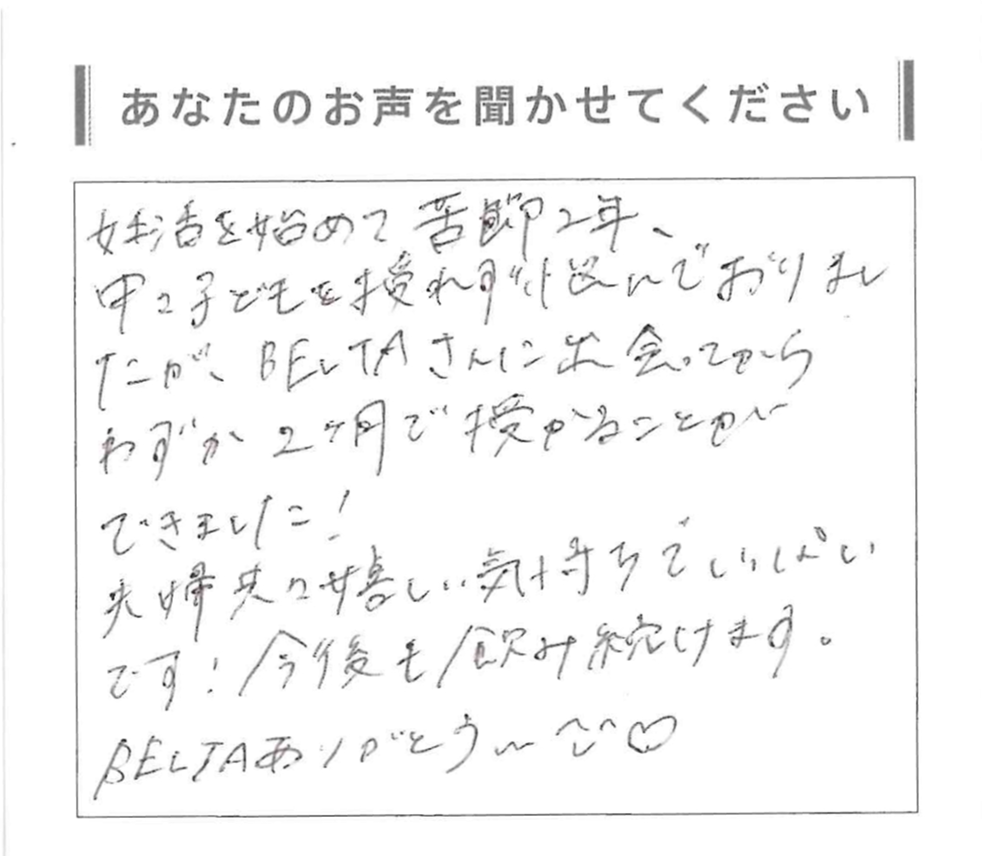 あなたのお声を聞かせてください
妊活を始めて苦節2年、
中々子どもを授れず凹んでおりまし
たが、BELTAさんに出会ってから
わずか2ヶ月で授かることが
できました!
夫婦共々嬉しい気持ちでいっぱい
です!今後も飲み続けます。
BELTAありがとう〜♡